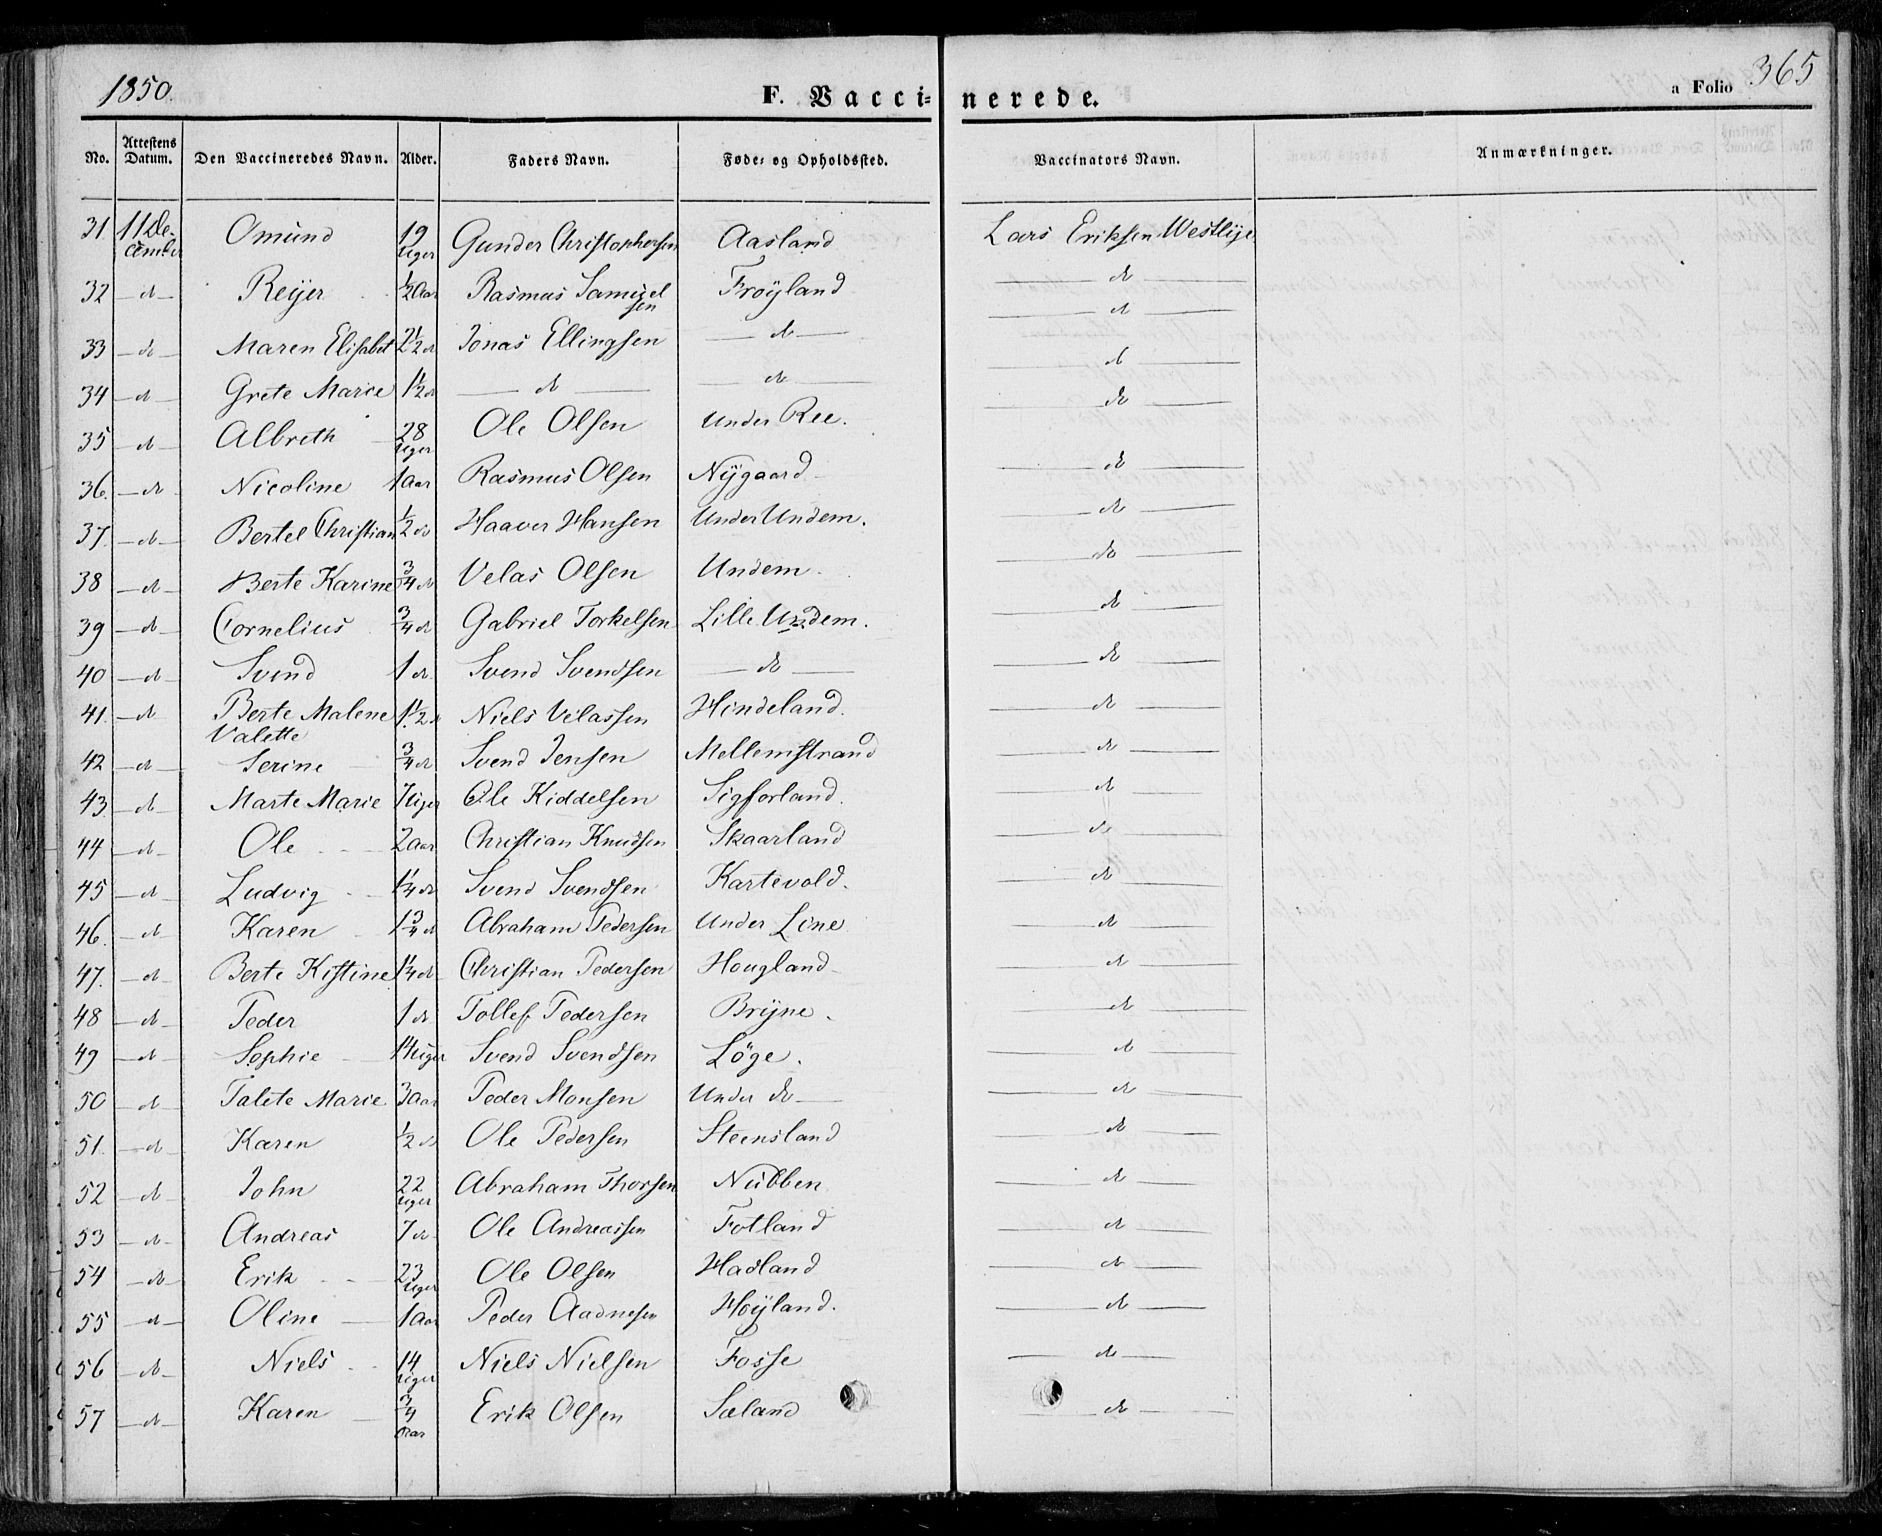 1850. F. Vacci- nerede. a Folio 365
No. Attestens Datum. Den Vaccineredes Navn. Alder. Faders Navn. Føde- og Opholdssted. Vaccinators Navn. Anmærkninger.
31 11 De- cember Omund 19 Uger Gunder Christophersen Aasland Lars Eriksen Westlye
32 - d - Reijer 1/2 Aar Rasmus Samuel sen Frøyland - d -
33 - d - Maren Elisabet 2 1/2 d Jonas Ellingsen - d - - d -
34 - d - Grete Marie 1 1/2 d - d - - d - - d -
35 - d - Albreth 28 Uger Ole Olsen Under Ree. - d -
36. - d - Nicoline 1 Aar Rasmus Olsen Nygaard - d -
37. - d - Bertel Christian 1/2 do Haaver Hansen Under Undem. - d -
38 - d - Berte Karine 3/4 d Velas Olsen Undem - do -
39 - d - Cornelius 3/4 d Gabriel Torkelsen Lille Undem. - d -
40 - d - Svend 1 d. Svend Svendsen - do - - d -
41. - d Berte Malene Valette 1 1/2 d Niels Velassen Hindeland. - d -
42 - d - Serine 3/4 d Svend Jensen Mellemstrand - d -
43 - d - Marte Marie 7 Uger Ole Kiddelsen Sigforland. - d -
44 - d - Ole 2 Aar Christian Knudsen Skaarland - d -
45 - d - Ludvig 1 1/4 d Svend Svendsen Kartevold. - d -
46. - d - Karen 1 3/4 d Abraham Pedersen Under Line - d -
47. - d Berte Kistine 1 1/4 d Christian Pedersen Hougland - d -
48 - d - Peder 1 d Tollef Pedersen Bryne. - d -
49 - d - Sophie 14 Uger Svend Svendsen Løge. - d -
50 - d - Talete Marie 3 Aar Peder Monsen Under do - - d -
51. - d - Karen 1/2 d Ole Pedersen Steensland - d -
52 - d - John 22 Uger Abraham Thorsen Nubben - d -
53 - d - Andreas 7 d Ole Andreassen Fotland - d -
54 - d - Erik 23 Uger Ole Olsen Hadland - d -
55 - d - Oline 1 Aar Peder Aadnesen Høyland. - d -
56 - d - Niels 14 Uger Niels Nielsen Fosse - d -
57 - d - Karen 3/4 Aar Erik Olsen Sæland - d -